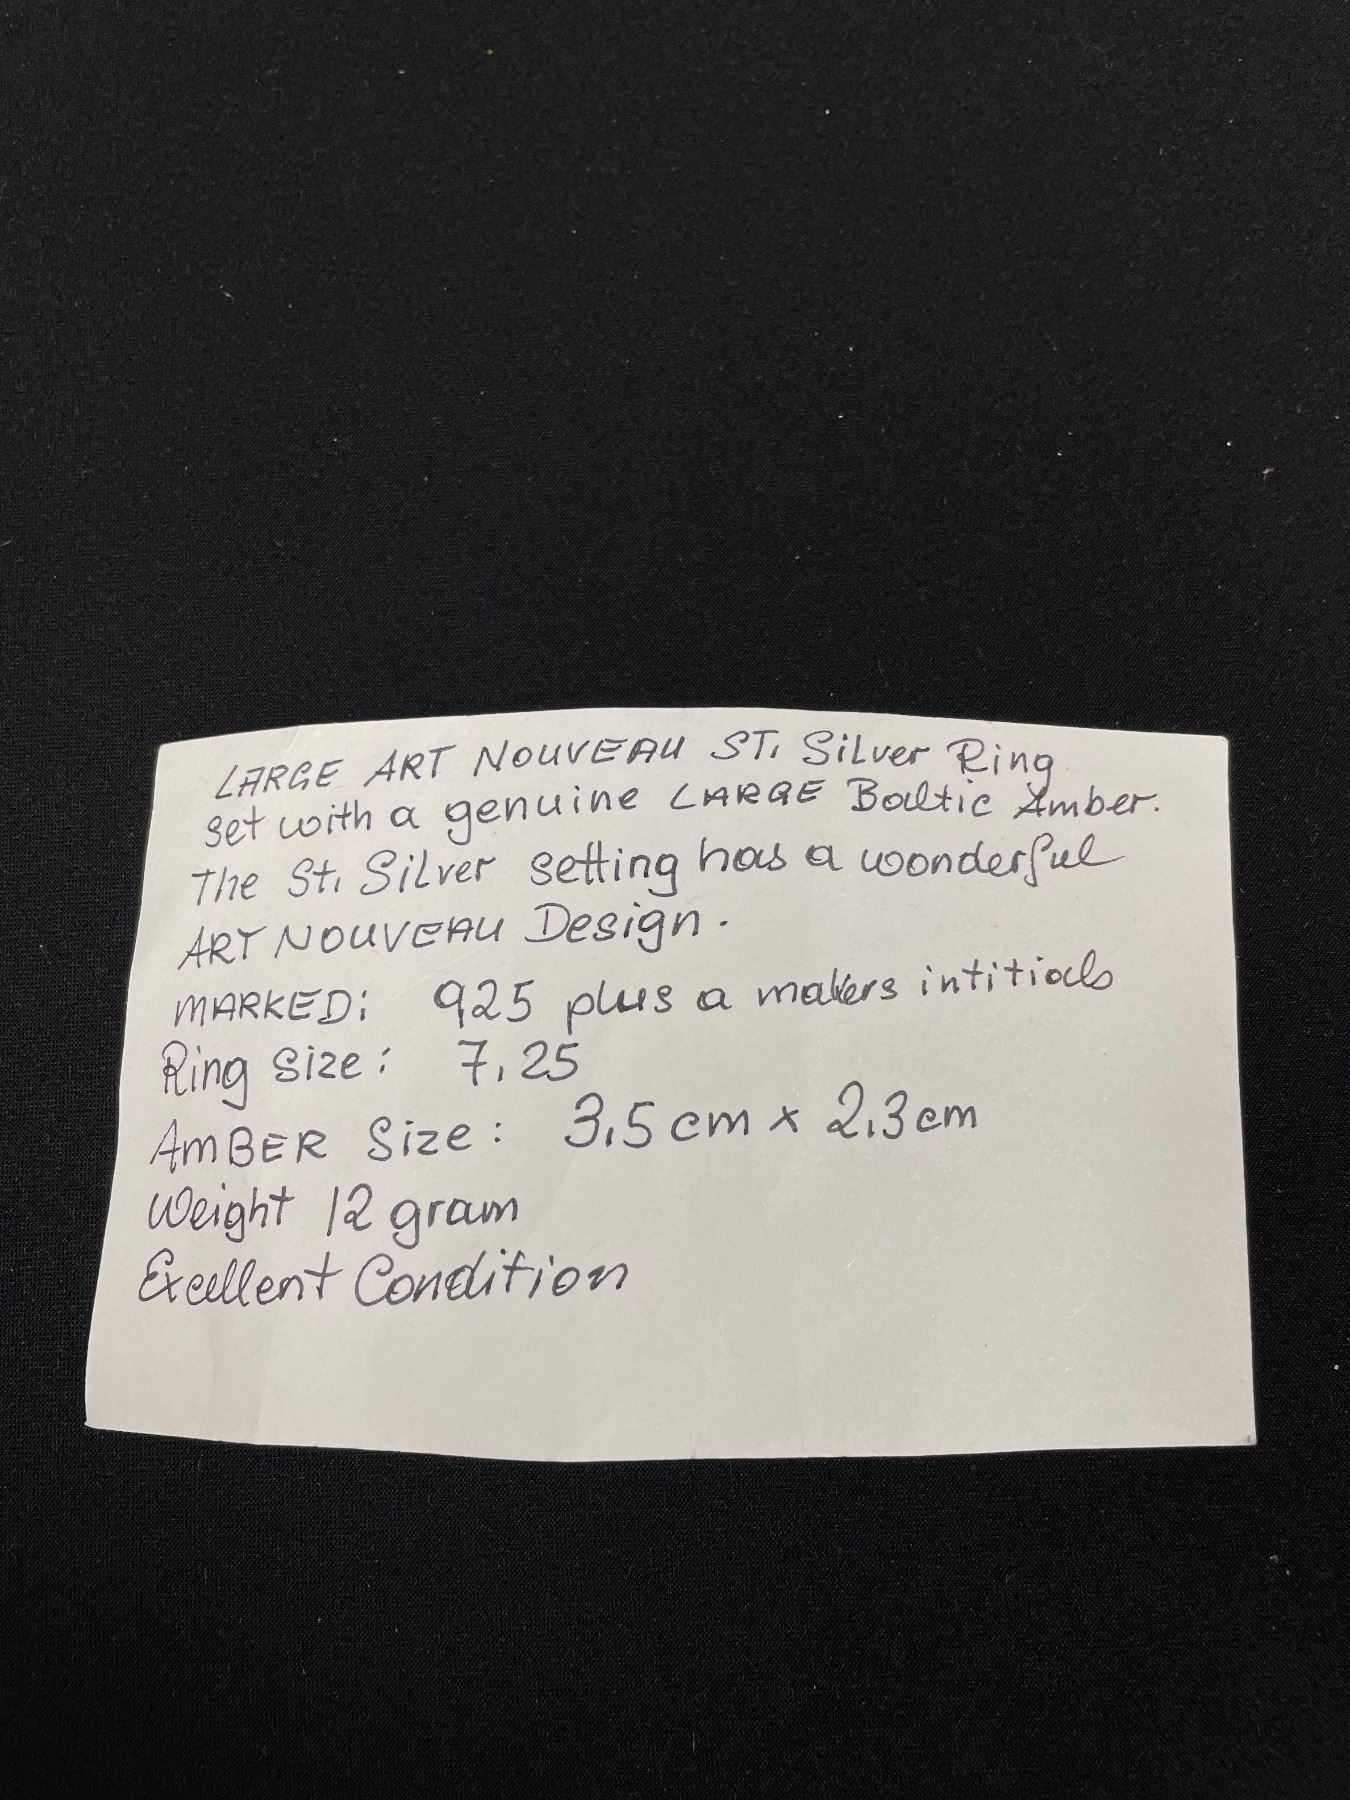 LARGE ART NOUVEAU ST. Silver Ring
set with a genuine LARGE Baltic Amber.
The St. Silver setting has a wonderful
ART NOUVEAU Design.
MARKED: 925 plus a makers intitials
Ring size: 7.25
AMBER Size: 3.5 cm x 2.3 cm
Weight 12 gram
Excellent Condition